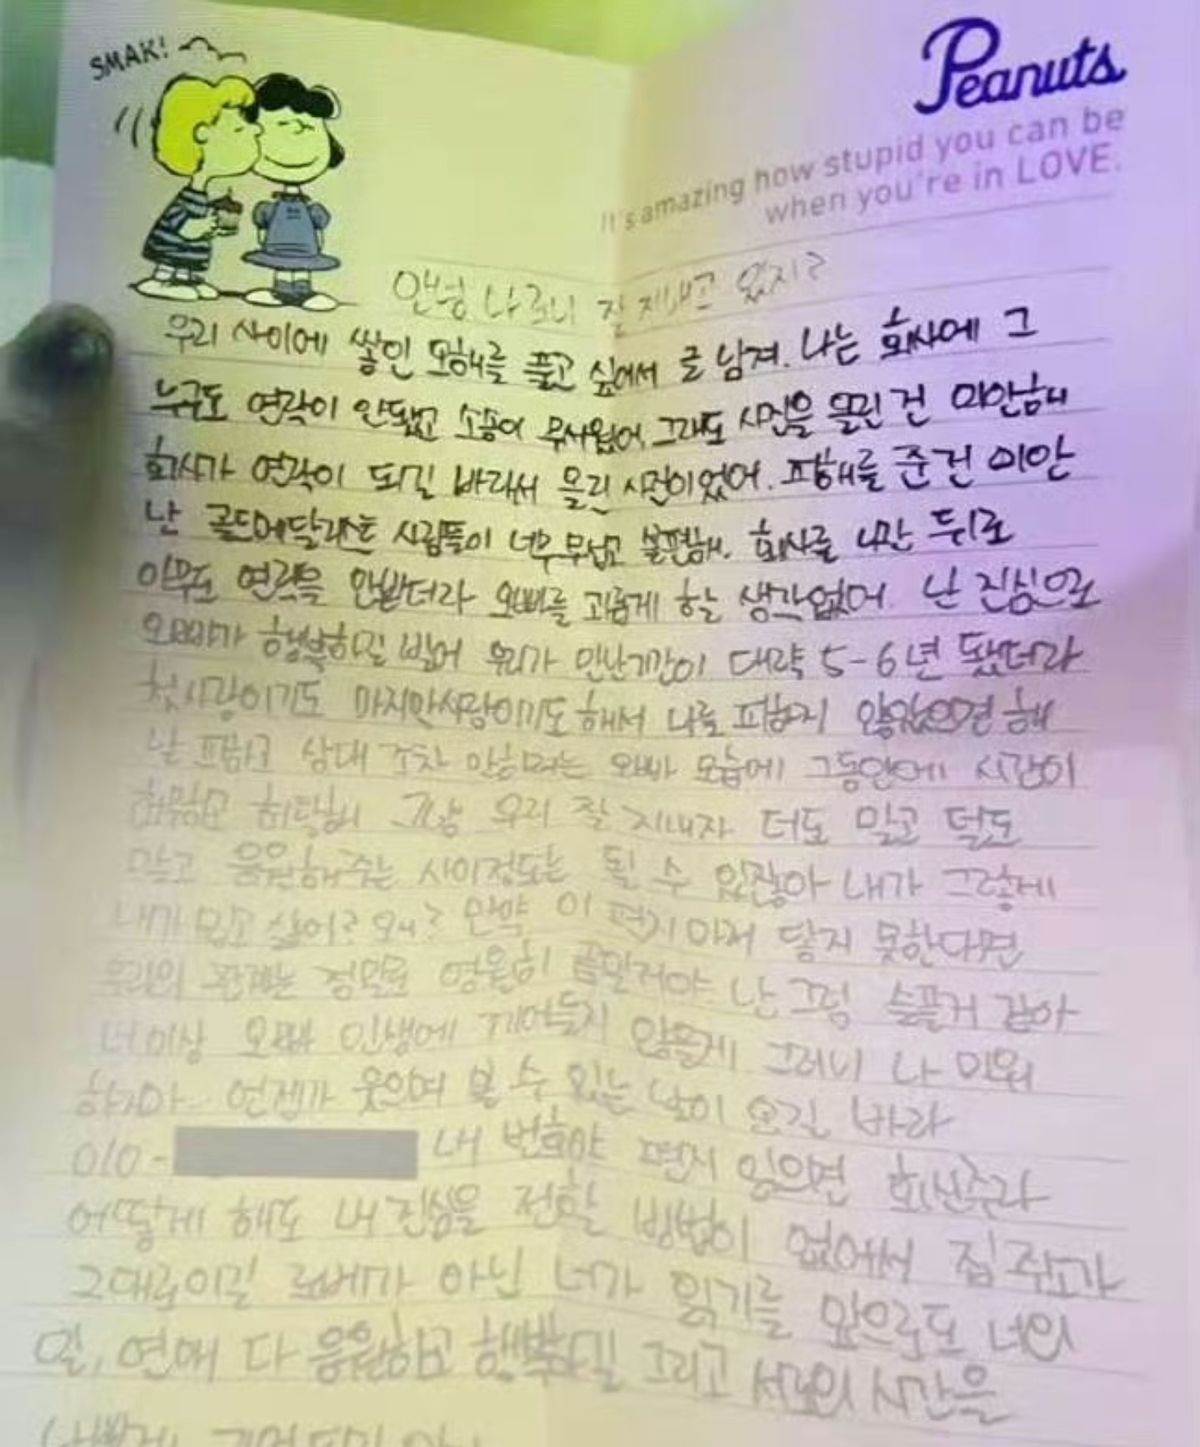 SMAK!
Peanuts
It's amazing how stupid you can be
when you're in LOVE.
안녕 나 로니 잘 지내고 있지?
우리 사이에 쌓인 오해를 풀고 싶어서 글 남겨. 나는 회사에 그
누구도 연락이 안됐고 소송이 무서웠어 그래도 사진을 올린 건 미안해
회사가 연락이 되길 바라서 올린 사진이었어. 피해를 준 건 미안
난 골드메달리스트 사람들이 너무 무섭고 불편해. 회사를 나간 뒤로
아무도 연락을 안받더라 오빠를 괴롭게 할 생각없어 난 진심으로
오빠가 행복하길 빌어 우리가 만난기간이 대략 5-6년 됐더라
첫사랑이기도 마지막사랑이기도해서 나를 피하지 않았으면 해
날 피하고 상대 조차 안하려는 오빠 모습에 그동안에 시간이
허무하고 허탈해 그냥 우리 잘 지내자 더도 말고 덜도
말고 응원해주는 사이정도는 될 수 있잖아 내가 그렇게
내가 밉고 싫어? 왜? 만약 이 편지마저 닿지 못한다면
우리의 관계는 정말로 영원히 끝일거야 난 그럼 슬플거 같아
더이상 오빠 인생에 끼어들지 않을게 그러니 나 미워
하지마. 언젠가 웃으며 볼 수 있는 날이 오길 바라
010- 내 번호야 편지 읽으면 회신주라
어떻게 해도 내 진심을 전할 방법이 없어서 집 주소가
그대로이길 로베가 아닌 너가 읽기를 앞으로도 너의
일, 연애 다 응원하고 행복하길 그리고 서로의 시간을